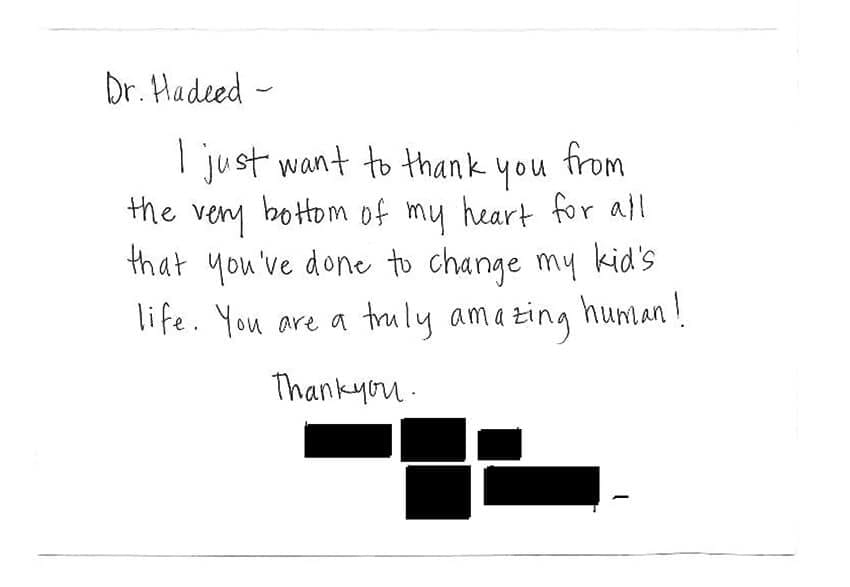 Dr. Hadeed -
I just want to thank you from
the very bottom of my heart for all
that you've done to change my kid's
life. You are a truly amazing human!
Thankyou.